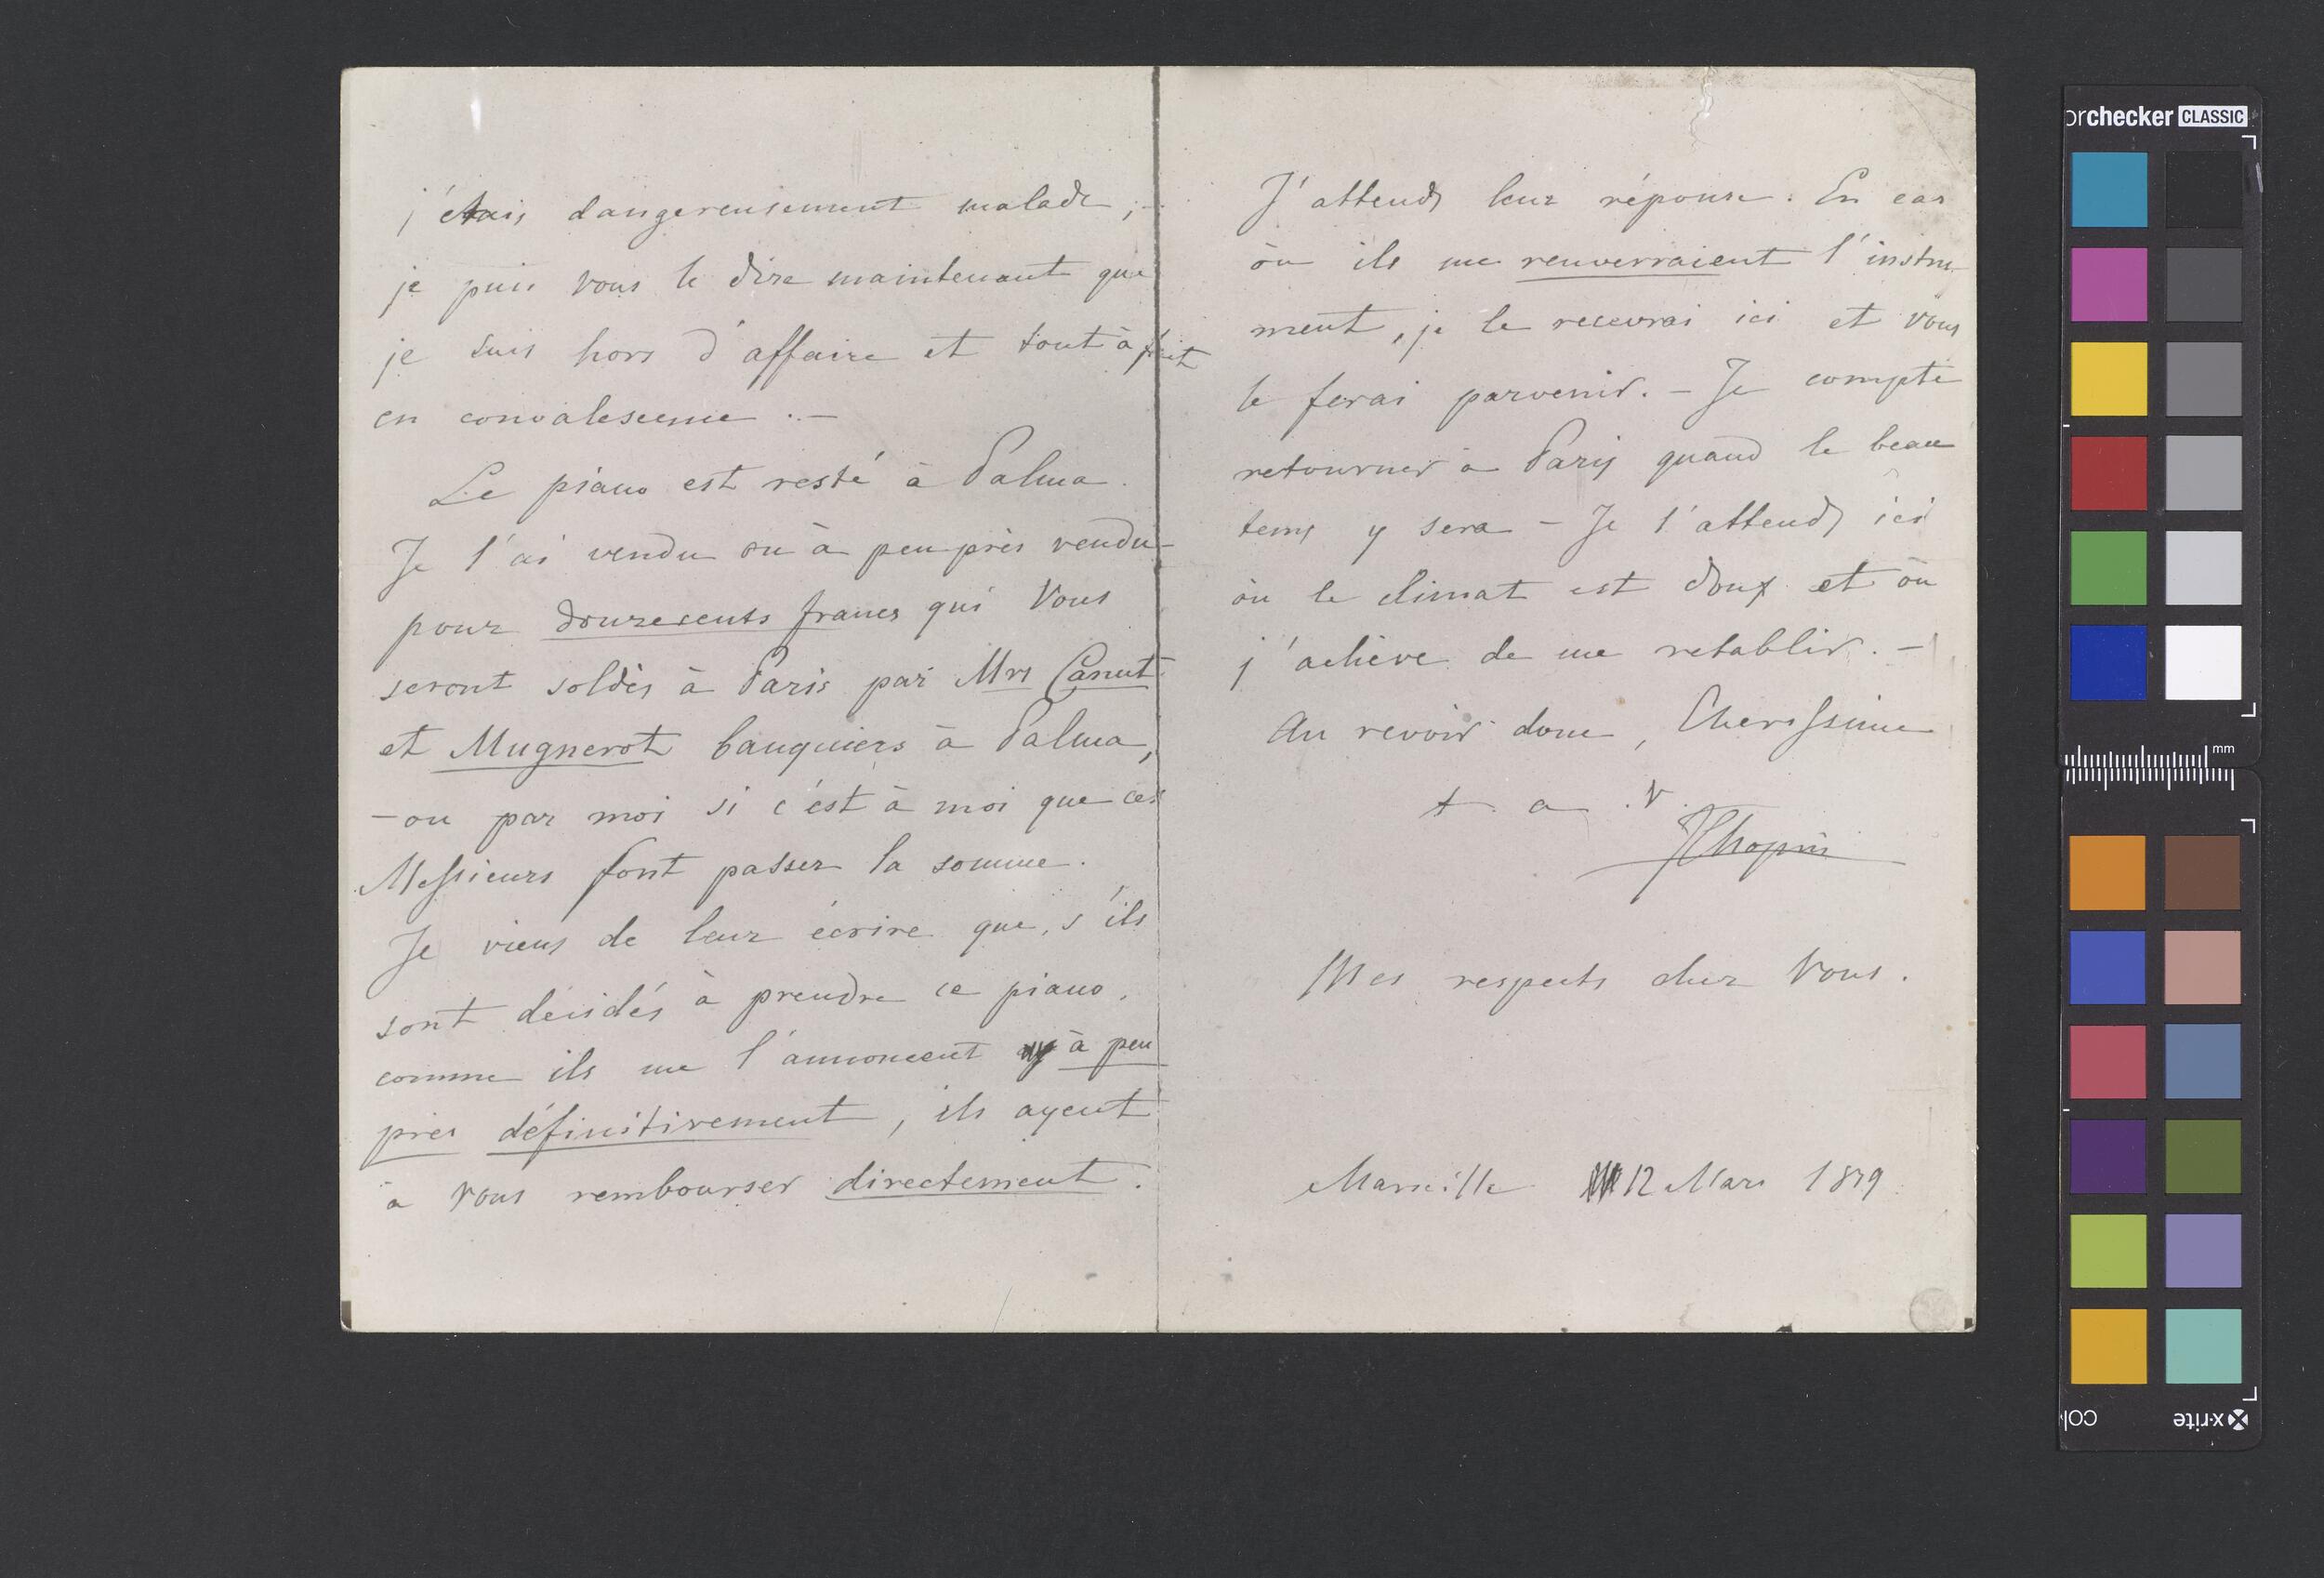 j'étais dangereusement malade ;
je puis vous le dire maintenant que
je suis hors d'affaire et tout à fait
en convalescence . —
Le piano est resté à Palma .
Je l'ai vendu ou à peu près vendu
pour douzecents francs qui Vous
seront soldés à Paris par Mrs Canut
et Mugnerot banquiers à Palma,
— ou par moi si c'est à moi que ces
Messieurs font passer la somme .
Je viens de leur écrire que, s'ils
sont décidés à prendre ce piano,
comme ils me l'annoncent à peu
près définitivement , ils ayent
à Vous rembourser directement .
J'attends leur réponse . En cas
où ils me renverraient l'instru-
ment , je le recevrai ici et Vous
le ferai parvenir . — Je compte
retourner à Paris quand le beau
tems y sera — Je l'attends ici
où le climat est doux et où
j'achève de me retablir . —
Au revoir donc , Cherissime
t . a . v .
FChopin
Mes respects chez Vous .
Marseille 12 Mars 1839
orchecker CLASSIC
mm
x-rite
col